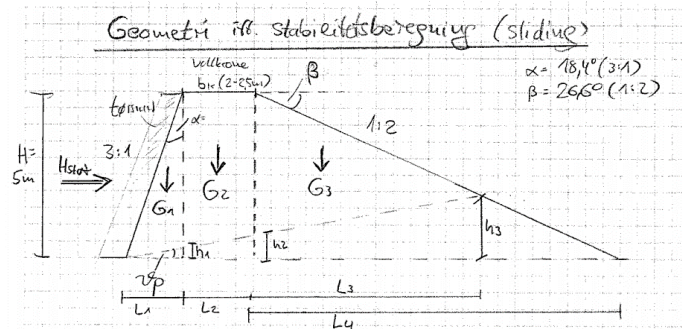 Geometri ift. stabilitetsberegning (sliding)
Vollkrone
α = 18,4° (3:1)
β = 26,6° (1:2)
β
α
3:1
1:2
H =
5m
Hstat
G1
G2
G3
h1
h2
h3
ϑp
L1
L2
L3
L4